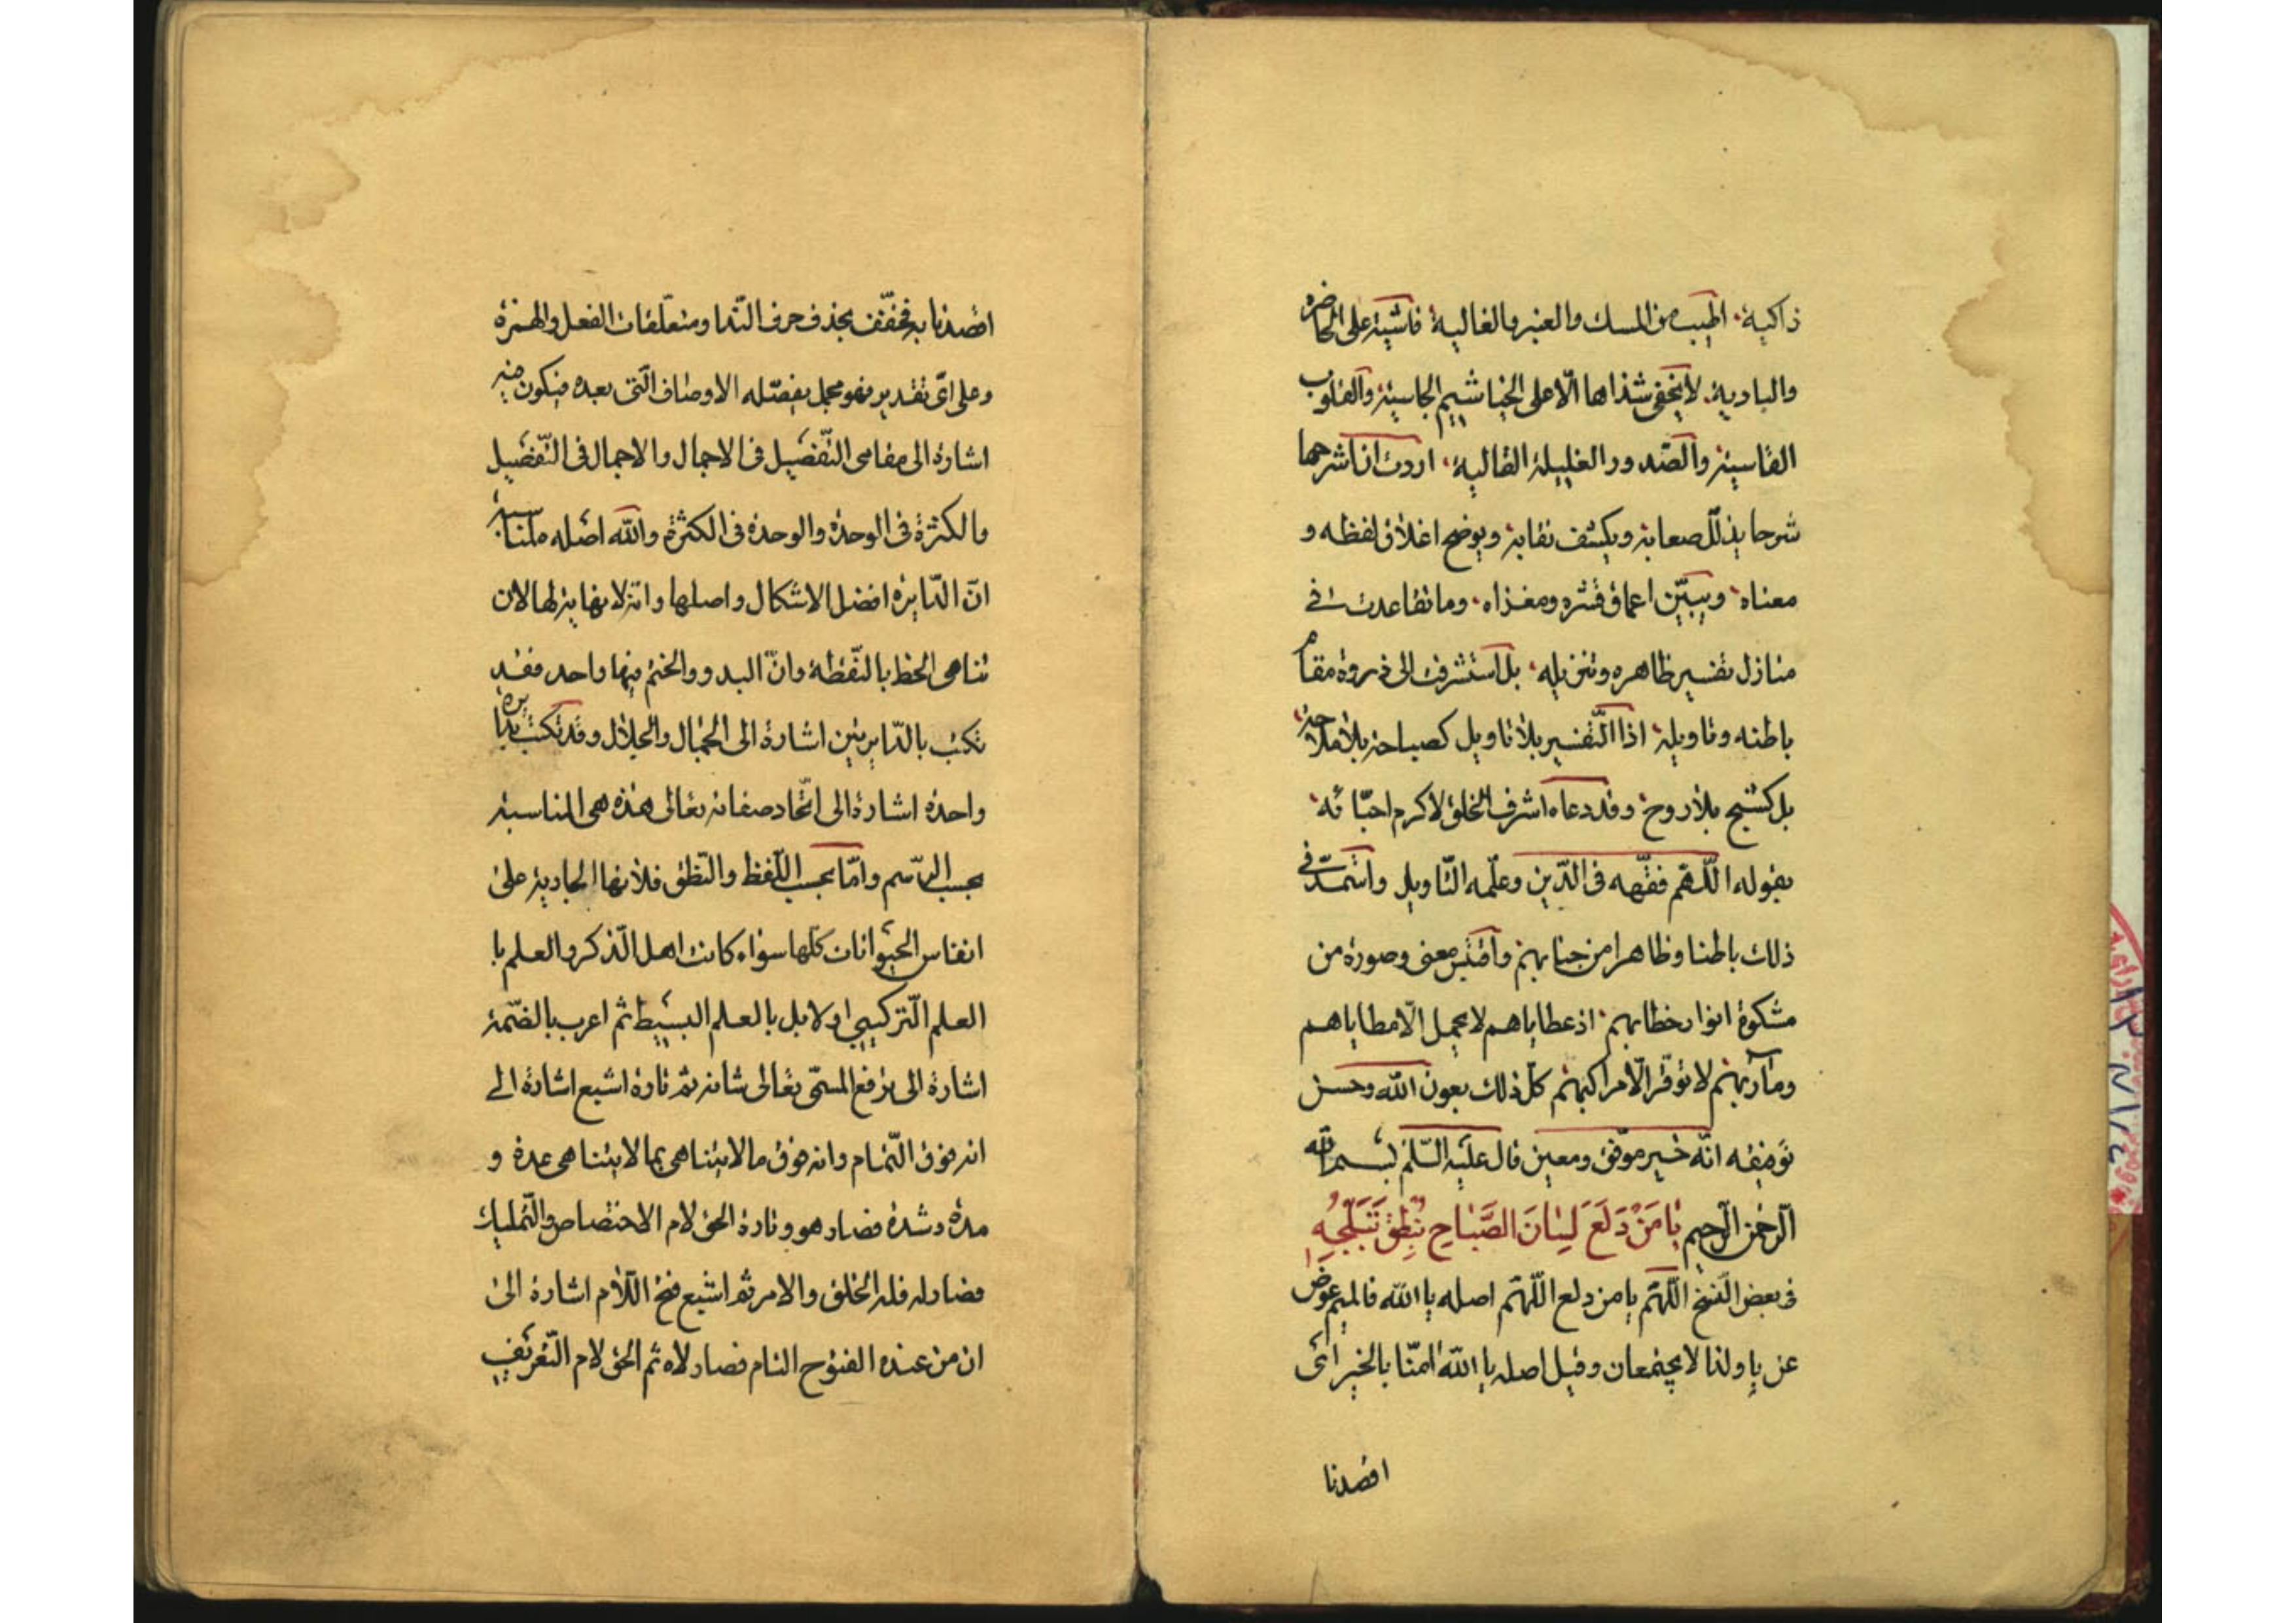 ذاكية، اطيب من المسك والعنبر والغالية فاشية على الحاضرة
والبادية. لا يخفى شذاها الّا على الخياشيم الجاسية والقلوب
القاسية والصّدور الغليلة القالية، اردت ان اشرحها
شرحا يذلّل صعابه ويكشف نقابه ويوضح اغلاق لفظه و
معناه ويبيّن اعماق قشره ومغزاه، وما تقاعدت فى
منازل تفسير ظاهره وتنزيله، بل استشرفت الى ذروة مقام
باطنه وتاويله اذا التّفسير بلا تاويل كصباحة بلا ملاحة
بل كشبح بلا روح، وقد دعا ه اشرف الخلق لاكرم احبّائه
بقوله اللّهم فقّهه فى الدّين وعلّمه التّاويل واستمدّ فى
ذلك باطنا وظاهرا من جنابهم واقتبس معنى وصورة من
مشكوة انوار خطابهم، اذ عطاياهم لا يحمل الّا مطاياهم
ومآربهم لا توقّر الّا مراكبهم كلّ ذلك بعون الله وحسن
توفيقه انّه خير موفّق ومعين قال عليه السّلم بسم الله
الرّحمن الرّحيم يَا مَنْ دَلَعَ لِسَانَ الصَّبَاحِ بِنُطْقِ تَبَلُّجِهِ
فى بعض النّسخ اللّهمّ يا من دلع اللّهمّ اصله يا الله فالميم عوض
عن يا ولذا لا يجتمعان وقيل اصله يا الله امنّا بالخير اى
اقصدنا
اقصدنا به فخفّف بحذف حرف النّدا ومتعلّقات الفعل والهمزة
وعلى اىّ تقدير فهو مجمل يفصّله الاوصاف الّتى بعده فيكون فيه
اشارة الى مقامى التّفصيل فى الاجمال والاجمال فى التّفصيل
والكثرة فى الوحدة والوحدة فى الكثرة والله اصله ه لمناسبة
انّ الدّايرة افضل الاشكال واصلها وانّه لا نهاية لها لان
تناهى الخط بالنّقطة وانّ البدو والختم فيها واحد فقد
تكتب بالدّايرتين اشارة الى الجمال والجلال وقد تكتب بدايرة
واحدة اشارة الى اتّحاد صفاته تعالى هذه هى المناسبة
بحسب الرّسم وامّا بحسب اللّفظ والنّطق فلانها الجارية على
انفاس الحيوانات كلّها سواء كانت اهل الذّكر والعلم با
العلم التّركيبى او لا بل بالعلم البسيط ثم اعرب بالضّمة
اشارة الى ترفع المسمّى تعالى شانه ثمّ تارة اشبع اشارة الى
انه فوق التّمام وانه فوق ما لا يتناهى بما لا يتناهى عدة و
مدة وشدة فصار هو وتارة الحق لام الاختصاص والتّمليك
فصار له فله الخلق والامر ثمّ اشبع فتح اللّام اشارة الى
ان من عنده الفتوح التام فصار لاه ثم الحق لام التّعريف